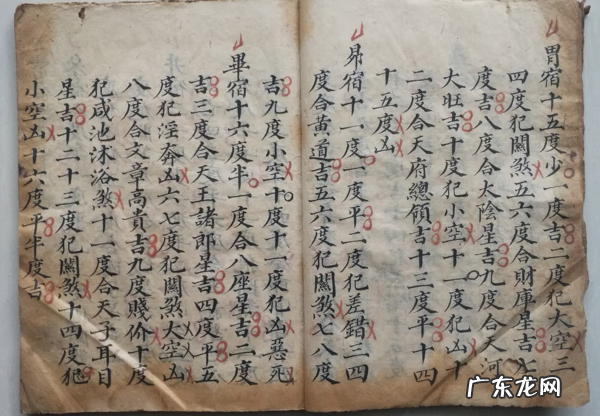 胃宿十五度少一度吉二度犯大空三
四度犯關煞五六度合財庫星吉七
度吉八度合太陰星吉九度合天河
大旺吉十度犯小空十一度犯凶十
二度合天府總領吉十三度平十四
十五度凶
昴宿十一度一度平二度犯差錯三四
度合黃道吉五六度犯關煞七八度
吉九度小空十度十一度犯凶惡死
畢宿十六度半一度合八座星吉二度
吉三度合天王諸郎星吉四度平五
度犯淫奔凶六七度犯關煞大空凶
八度合文章高貴吉九度賤价十度
犯咸池沐浴煞十一度合天子耳目
星吉十二十三度犯關煞十四度犯
小空凶十六度平半度吉
广东龙网